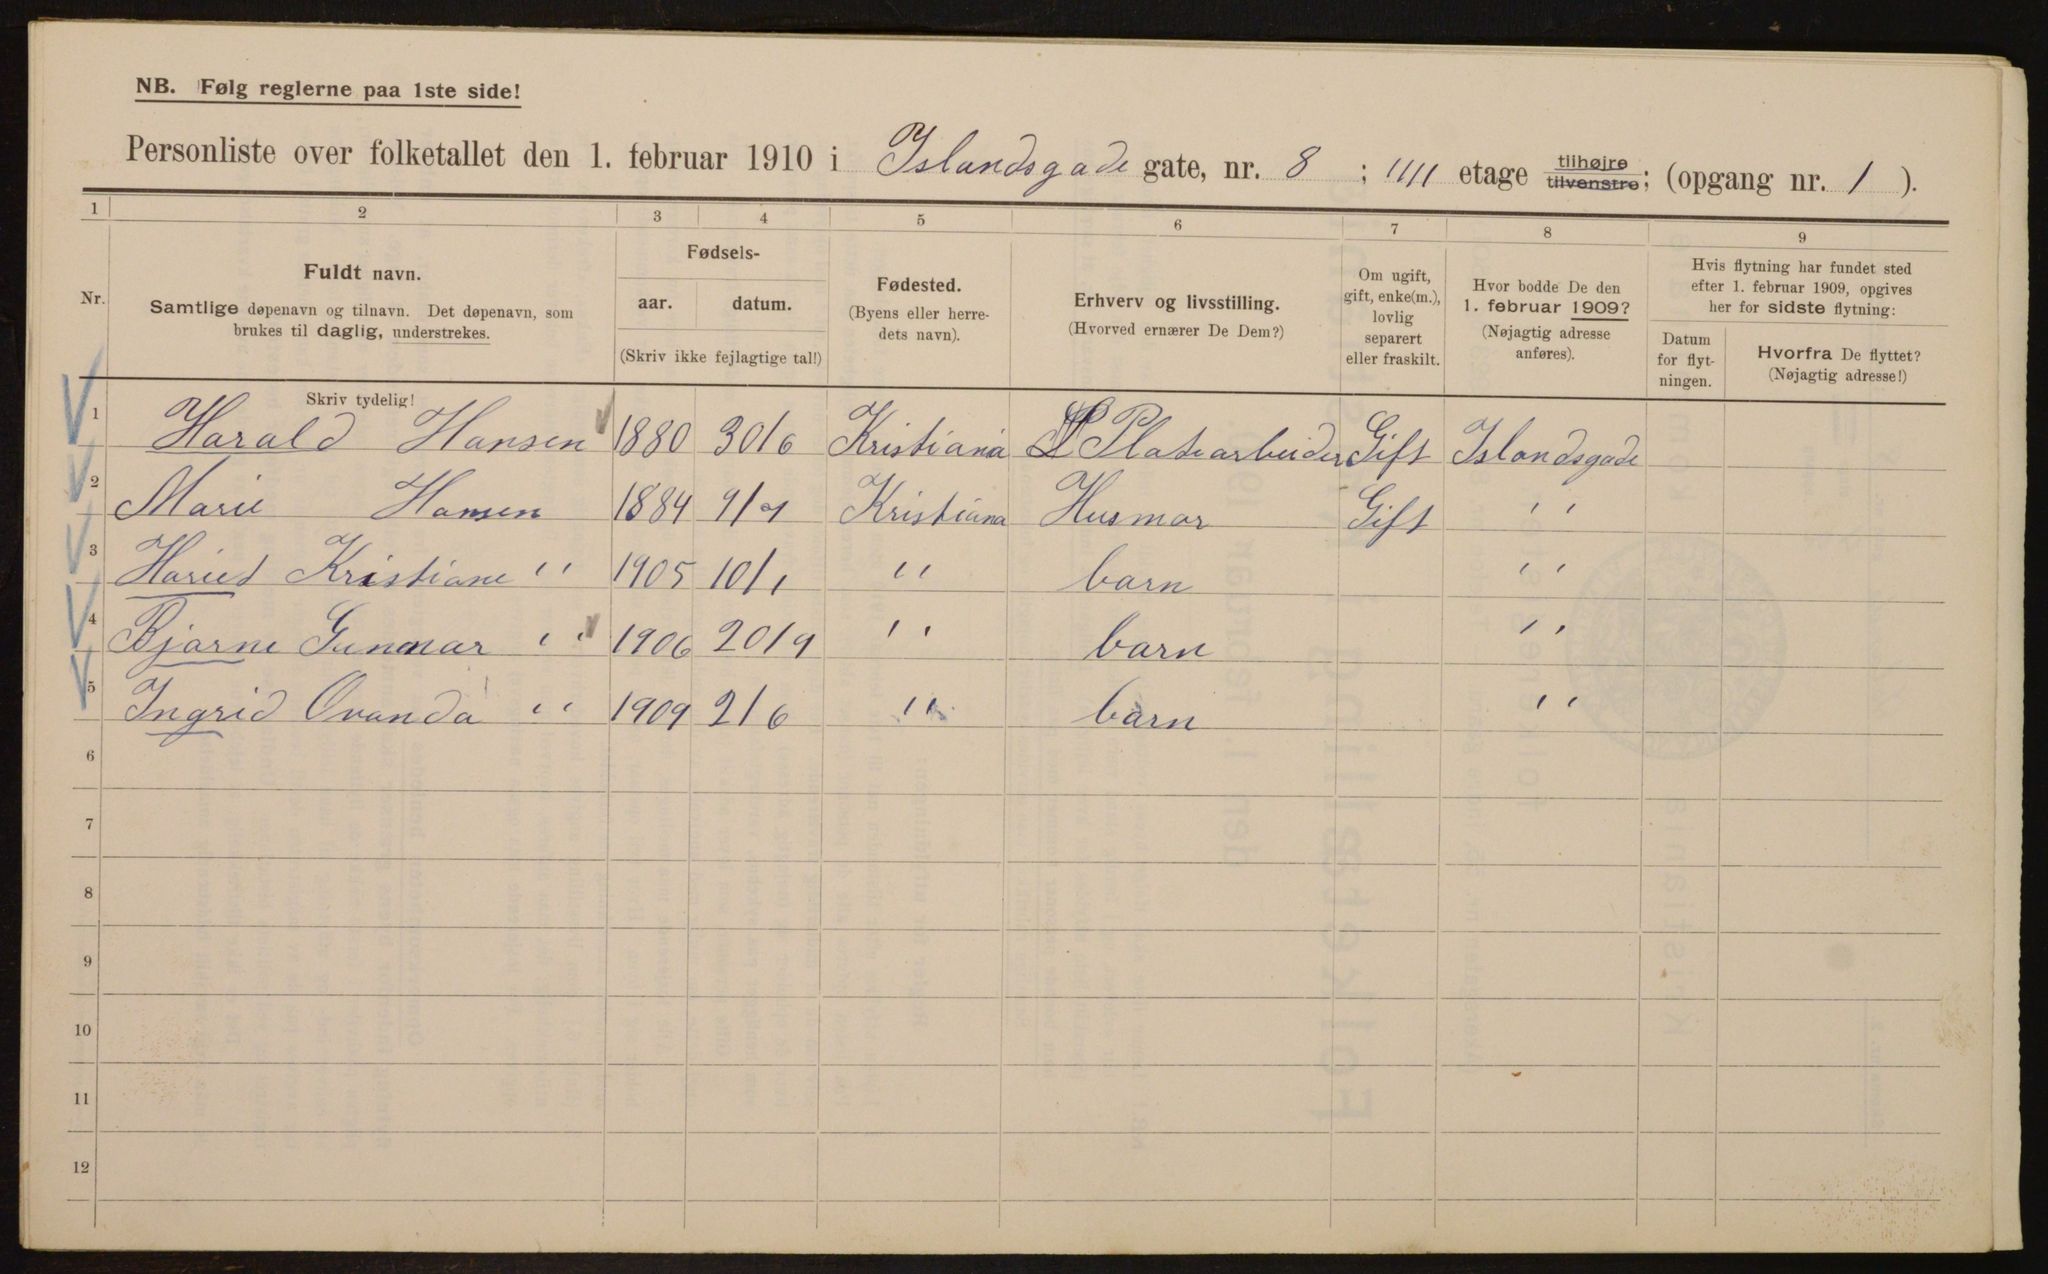 NB. Følg reglerne paa 1ste side!
Personliste over folketallet den 1. februar 1910 i Islandsgade gate, nr. 8 ; 1111 etage tilhøjre tilvenstre; (opgang nr. 1 ).
1 2 3 4 5 6 7 8 9
Nr.
Fuldt navn.
Samtlige døpenavn og tilnavn. Det døpenavn, som
brukes til daglig, understrekes.
Fødsels-
aar. datum.
(Skriv ikke fejlagtige tal!)
Fødested.
(Byens eller herre-
dets navn).
Erhverv og livsstilling.
(Hvorved ernærer De Dem?)
Om ugift,
gift, enke(m.),
lovlig
separert
eller fraskilt.
Hvor bodde De den
1. februar 1909?
(Nøjagtig adresse
anføres).
Hvis flytning har fundet sted
efter 1. februar 1909, opgives
her for sidste flytning:
Datum
for flyt-
ningen.
Hvorfra De flyttet?
(Nøjagtig adresse!)
Skriv tydelig!
1 Harald Hansen 1880 30/6 Kristiania Platearbeider Gift Islandsgade
2 Marie Hansen 1884 Kristiana Husmor Gift " "
3 Haried Kristiane " 1905 10/1 " barn " "
4 Bjarne Gunnar " 1906 20/9 " barn " "
5 Ingrid Ovanda " 1909 2/6 " barn " "
6
7
8
9
10
11
12